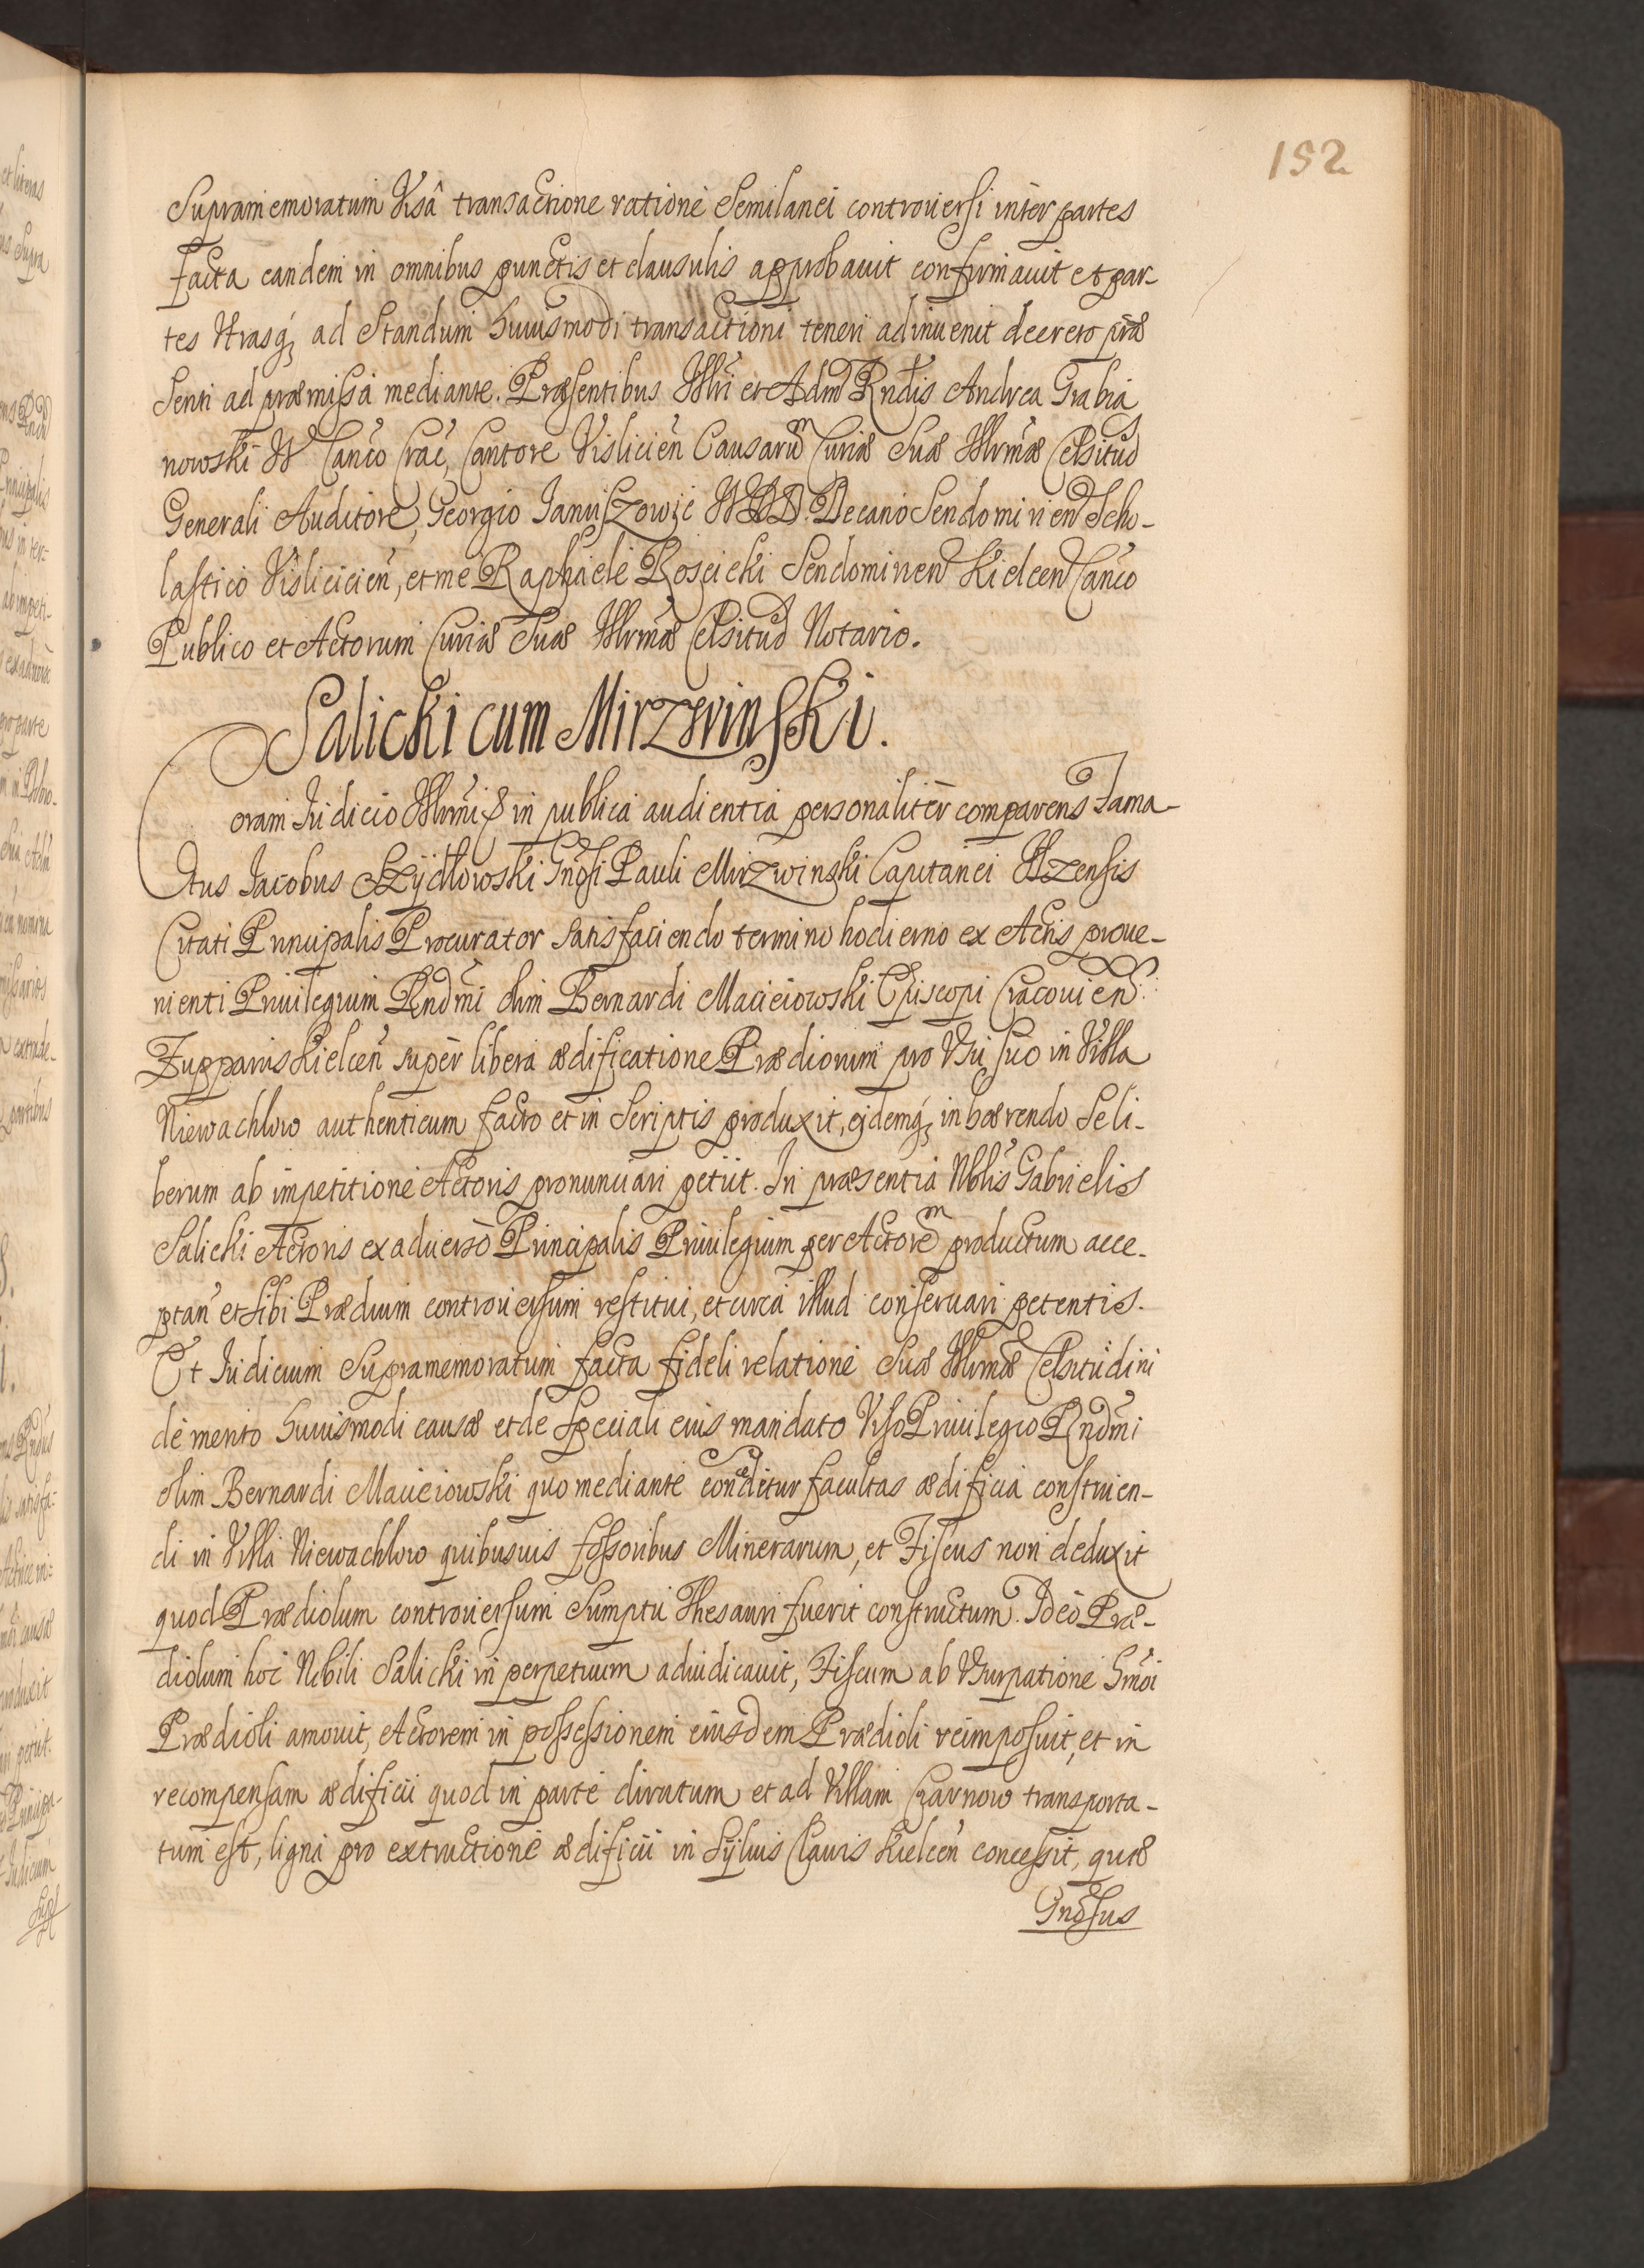 152
Supramemoratum Visâ transactione ratione Semilanei controuersi inter partes
facta eandem in omnibus punctis et clausulis approbauit confirmauit et par-
tes Vtrasq́ ad Standum huiusmodi transactioni teneri adinuenit decreto præ
senti ad præmissa mediante. Præsentibus Illri et Adm Rndis Andrea Grabia
nowski Canco Crac, Cantore Vislicien Causarum Curiæ Suæ Illrmæ Celsitud
Generali Auditore, Georgio Januszowic Decano Sendomirien Scho-
lastico Vislicicien, et me Raphaele Roscicki Sendomirien Kielcen Canco
Publico et Actorum Curiæ Suæ Illrmæ Celsitud Notario.
Salicki cum Mirzwinski.
Coram Iudicio Illrmi in publica audientia personaliter comparens Fama-
tus Jacobus Szÿdłowski Gnosi Pauli Mirzwinski Capitanei Ilzensis
Citati Principalis Procurator satisfaciendo termino hodierno ex Actis proue-
nienti Priuilegium Rndmi olim Bernardi Macieiowski Episcopi Cracouien
Zupparis Kielcen super libera ædificatione Prædiorum pro Vsu suo in Villa
Niewachlow authenticum facto et in Scriptis produxit, eidemq́ inhærendo Se li-
berum ab impetitione Actoris pronunciari petiit. In præsentia Nblis Gabrielis
Salicki Actoris ex aduerso Principalis Priuilegium per Actorem productum acce-
ptan et sibi Prædium controuersum restitui, et circa illud conseruari petentis.
Et Iudicium Supramemoratum facta fideli relatione Suæ Illrmæ Celsitudini
de merito huiusmodi causæ et de speciali eius mandato Viso Priuilegio Rndmi
olim Bernardi Macieiowski quo mediante conceditur facultas ædificia construen-
di in Villa Niewachlow quibusuis fossoribus Minerarum, et Fiscus non deduxit
quod Prædiolum controuersum Sumptu Thesauri fuerit constructum. Ideo Præ-
diolum hoc Nobili Salicki in perpetuum adiudicauit, Fiscum ab Vsurpatione hmoi
Prædioli amouit, Actorem in possessionem eiusdem Prædioli reimposuit, et in
recompensam ædificii quod in parte dirutum et ad Villam Czarnow transporta-
tum est, ligna pro extructione ædificii in Sÿluis Clauis Kielcen concessit, quæ
Gnosus